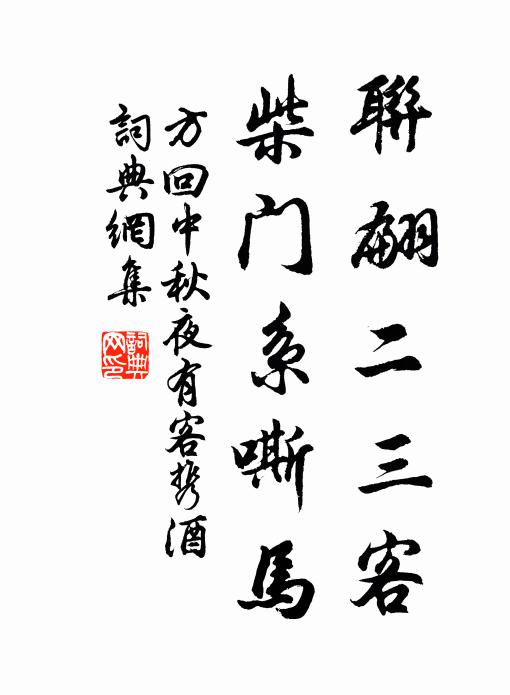 聯翩二三客
柴门系嘶馬
方回中秋夜有客携酒
詞典網集
詞典
网印